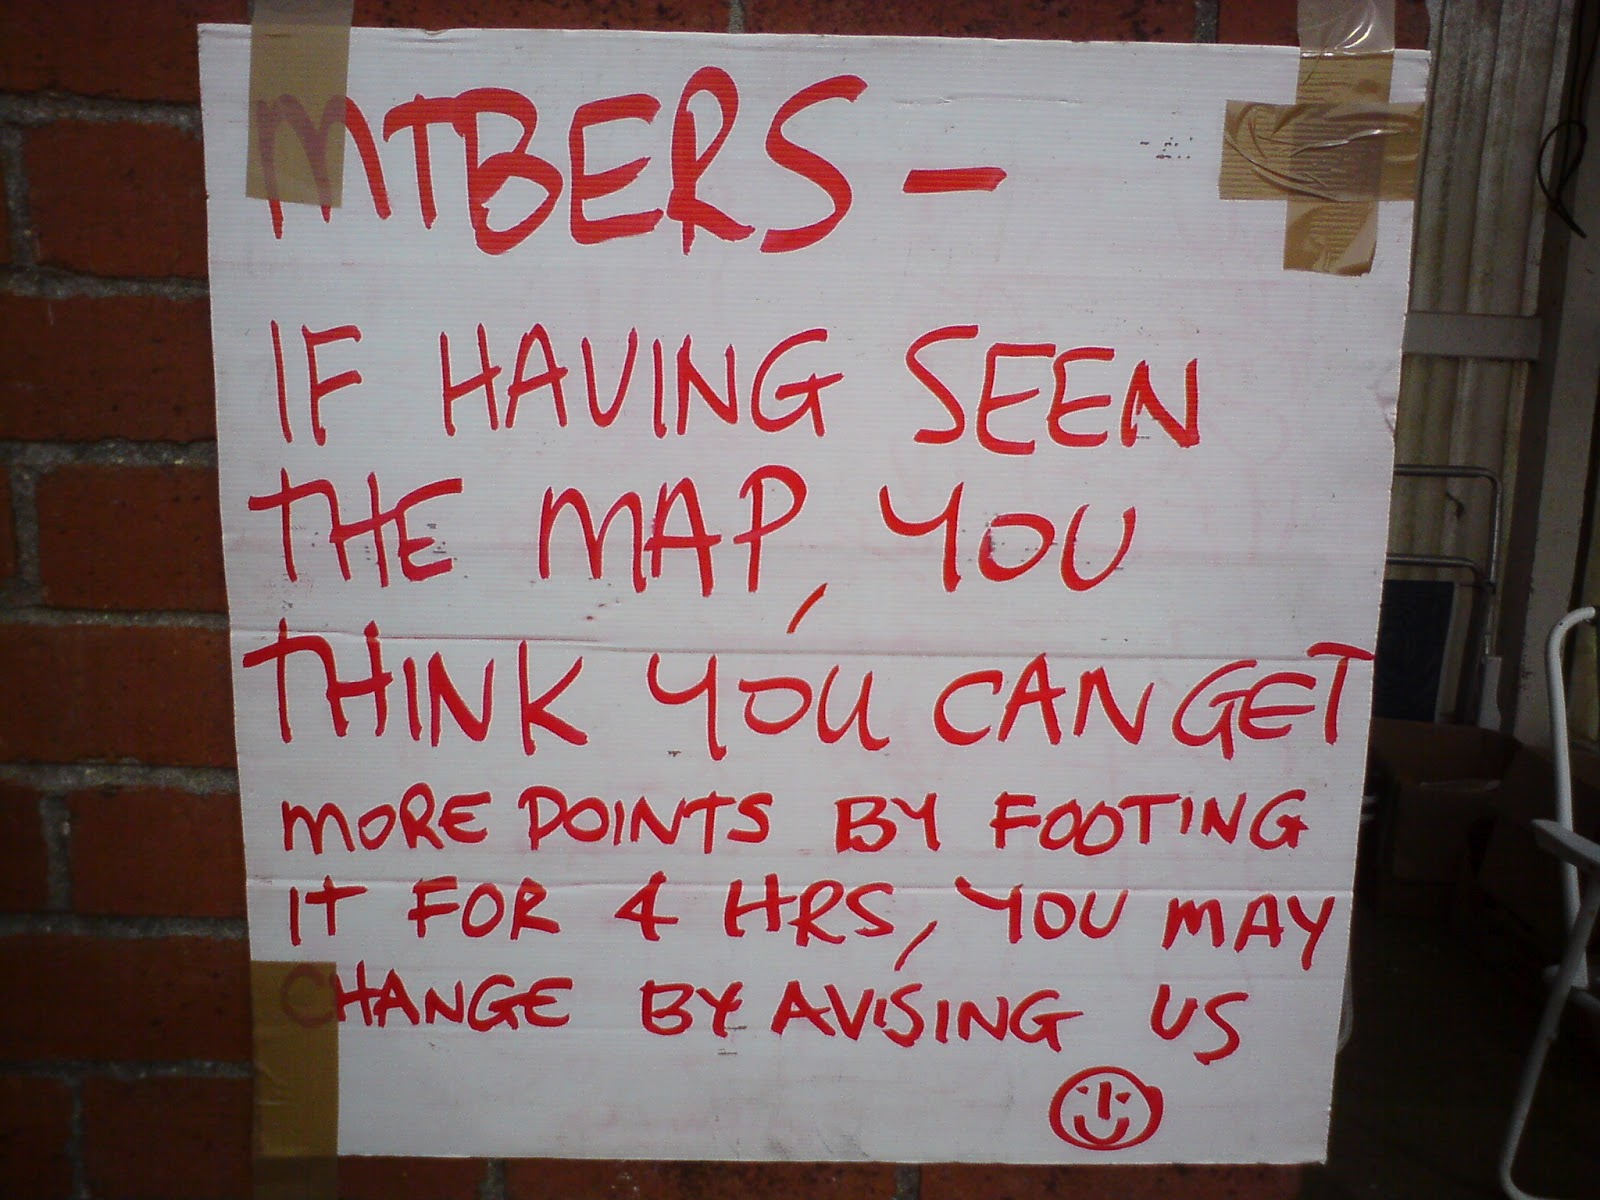 MTBERS -
IF HAVING SEEN
THE MAP, YOU
THINK YOU CAN GET
MORE POINTS BY FOOTING
IT FOR 4 HRS, YOU MAY
CHANGE BY AVISING US